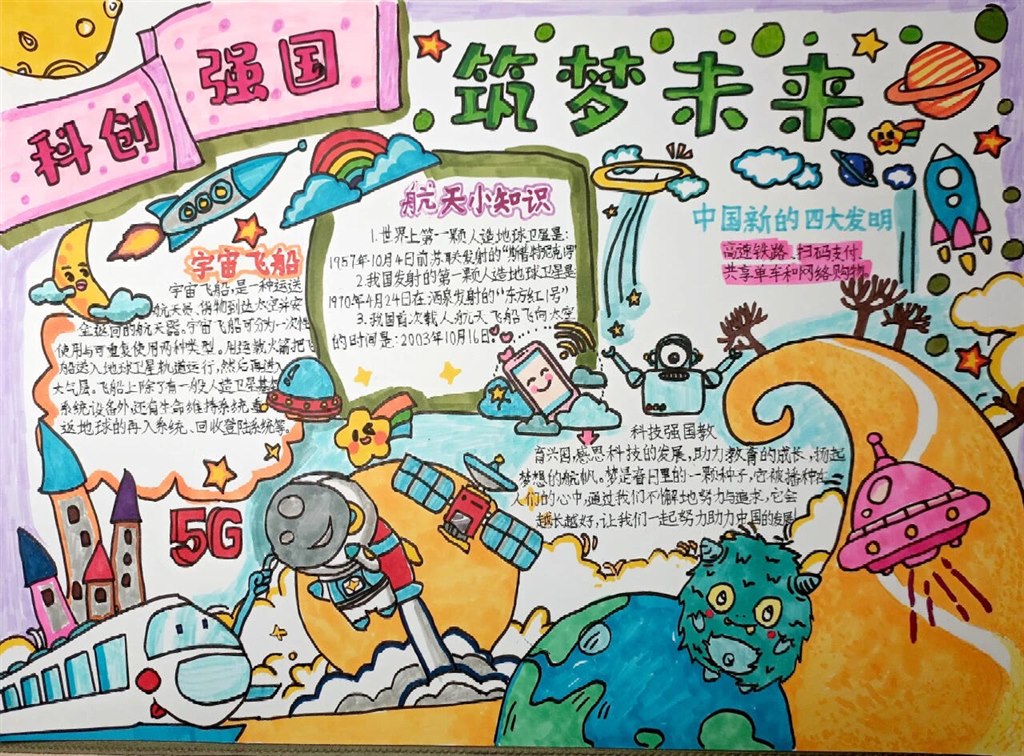 科创
强国
筑梦未来
宇宙飞船
宇宙飞船,是一种运送
航天员、货物到达太空并安
全返回的航天器。宇宙飞船可分为一次性
使用与可重复使用两种类型。用运载火箭把飞
船送入地球卫星轨道运行,然后再进入
大气层。飞船上除了有一般人造卫星基本
系统设备外还有生命维持系统、重
返地球的再入系统、回收登陆系统等。
航天小知识
1.世界上第一颗人造地球卫星是:
1957年10月4日前苏联发射的“斯普特尼克1号”
2.我国发射的第一颗人造地球卫星是
1970年4月24日在酒泉发射的“东方红1号”
3.我国首次载人航天飞船飞向太空
的时间是:2003年10月16日。
中国新的四大发明
高速铁路、扫码支付、
共享单车和网络购物。
科技强国教
育兴国,感恩科技的发展,助力教育的成长,扬起
梦想的航帆。梦是昏日里的一颗种子,它被播种在
人们的心中,通过我们不懈地努力与追求,它会
越长越好,让我们一起努力助力中国的发展!
5G